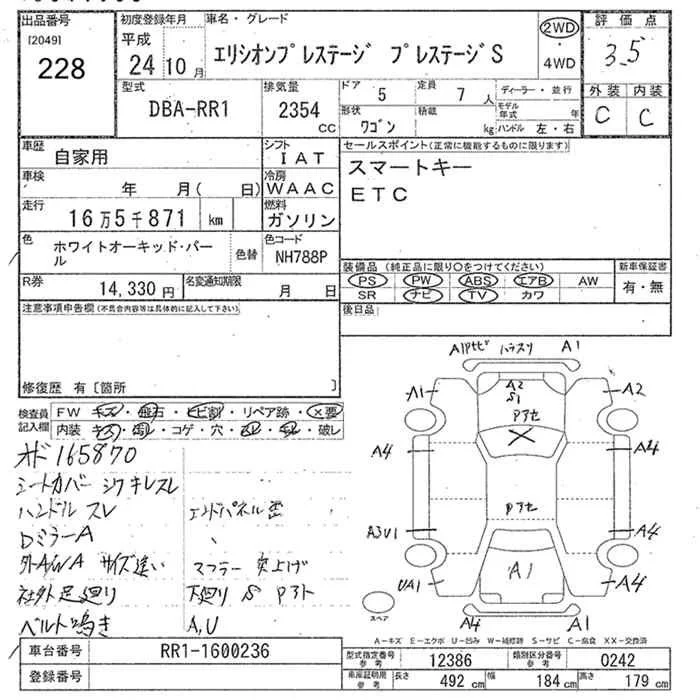 出品番号 初度登録年月 車名・グレード 評価点
[2049] 228
平成 24 10 月
エリシオンプレステージ プレステージS
2WD ・ 4WD
3.5
外装 内装
C C
型式 DBA-RR1
排気量 2354 CC
ドア 5 定員 7 人 ディーラー・並行
形状 ワゴン 積載 kg モデル年式 年
ハンドル 左・右
車歴 自家用
シフト IAT
セールスポイント(正常に機能するものに限ります)
スマートキー
ETC
車検 年 月( 日)
冷房 WAAC
走行 16万5千871 km
燃料 ガソリン
色 ホワイトオーキッド・パール
色替
色コード NH788P
R券 14,330 円
名変通知期限 月 日
装備品(純正品に限り○をつけてください) 新車保証書
PS PW ABS エアB AW 有・無
SR ナビ TV カワ
注意事項申告欄(不具合内容等は具体的に記入して下さい)
後日品
修復歴 有〔箇所 〕
検査員記入欄
FW キズ・飛石・ヒビ割・リペア跡・X要
内装 キズ・汚レ・コゲ・穴・凹レ・キレ・破レ
オド 165870
シートカバー シワ キレ スレ
ハンドル スレ
DミラーA
外A/WA サイズ違い
社外足廻り
ベルト鳴き
エンドパネル歪
マフラー 突上げ
下廻り S Pアト
A,U
A1 Pセビ ハラスリ A1
A1 A2 S1 Pアセ A2
A4 A4
Pアセ
A3U1 A4
UA1 A1 A4
スペア
A4 A1
A-キズ E-エクボ U-凹み W-補修跡 S-サビ C-腐食 XX-交換済
車台番号 RR1-1600236
型式指定番号 参考 12386 類別区分番号 参考 0242
登録番号
車庫証明用 参考 長さ 492 cm 幅 184 cm 高さ 179 cm